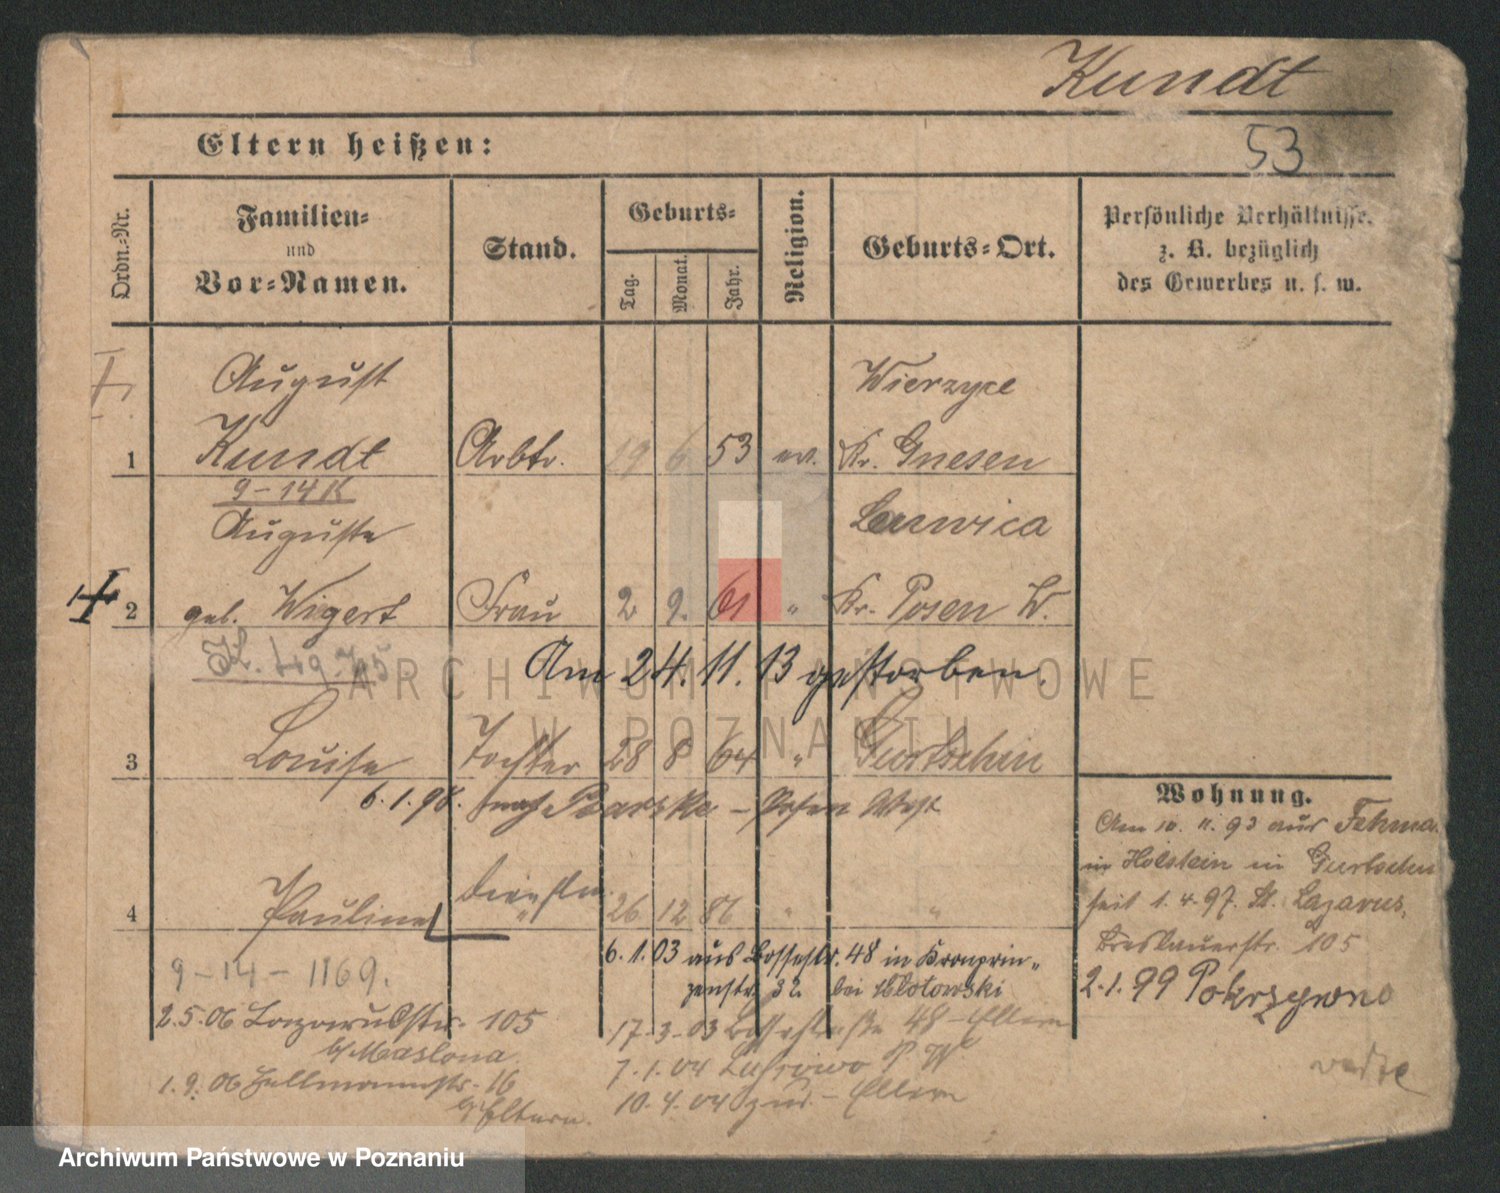 Kundt
Eltern heißen:
53
Ordn.=Nr.
Familien=
und
Vor=Namen.
Stand.
Geburts=
Tag.
Monat.
Jahr.
Religion.
Geburts=Ort.
Persönliche Verhältnisse.
z. B. bezüglich
des Gewerbes u. s. w.
August
Wierzyce
1 Kundt Arbtr. 19 6 53 ev. Kr. Gnesen
9-14 K
Auguste
2 geb. Wigert Frau 2 9. 61 " Kr. Posen W.
Am 24.11.13 gestorben.
3 Louise Tochter 28 8 " Gurtschin
6.1.98. nach - Posen West
4 Pauline 26 12 86 " "
9-14-1169.
6.1.03 aus 48 in Kronprin-
zenstr. 32. bei
2.5.06 Lazarusstr. 105
b/ Maslona.
1.9.06 16
b/ Eltern.
17.3.03 48 - Eltern
7.1.04
10.4.04 zur. - Eltern
Wohnung.
Am 10. 11. 93 aus
in Holstein in Gurtschin
seit 1.4.97. St. Lazarus,
Breslauerstr. 105
2.1.99 Pokrzywno
ARCHIWUM PAŃSTWOWE
W POZNANIU
Archiwum Państwowe w Poznaniu